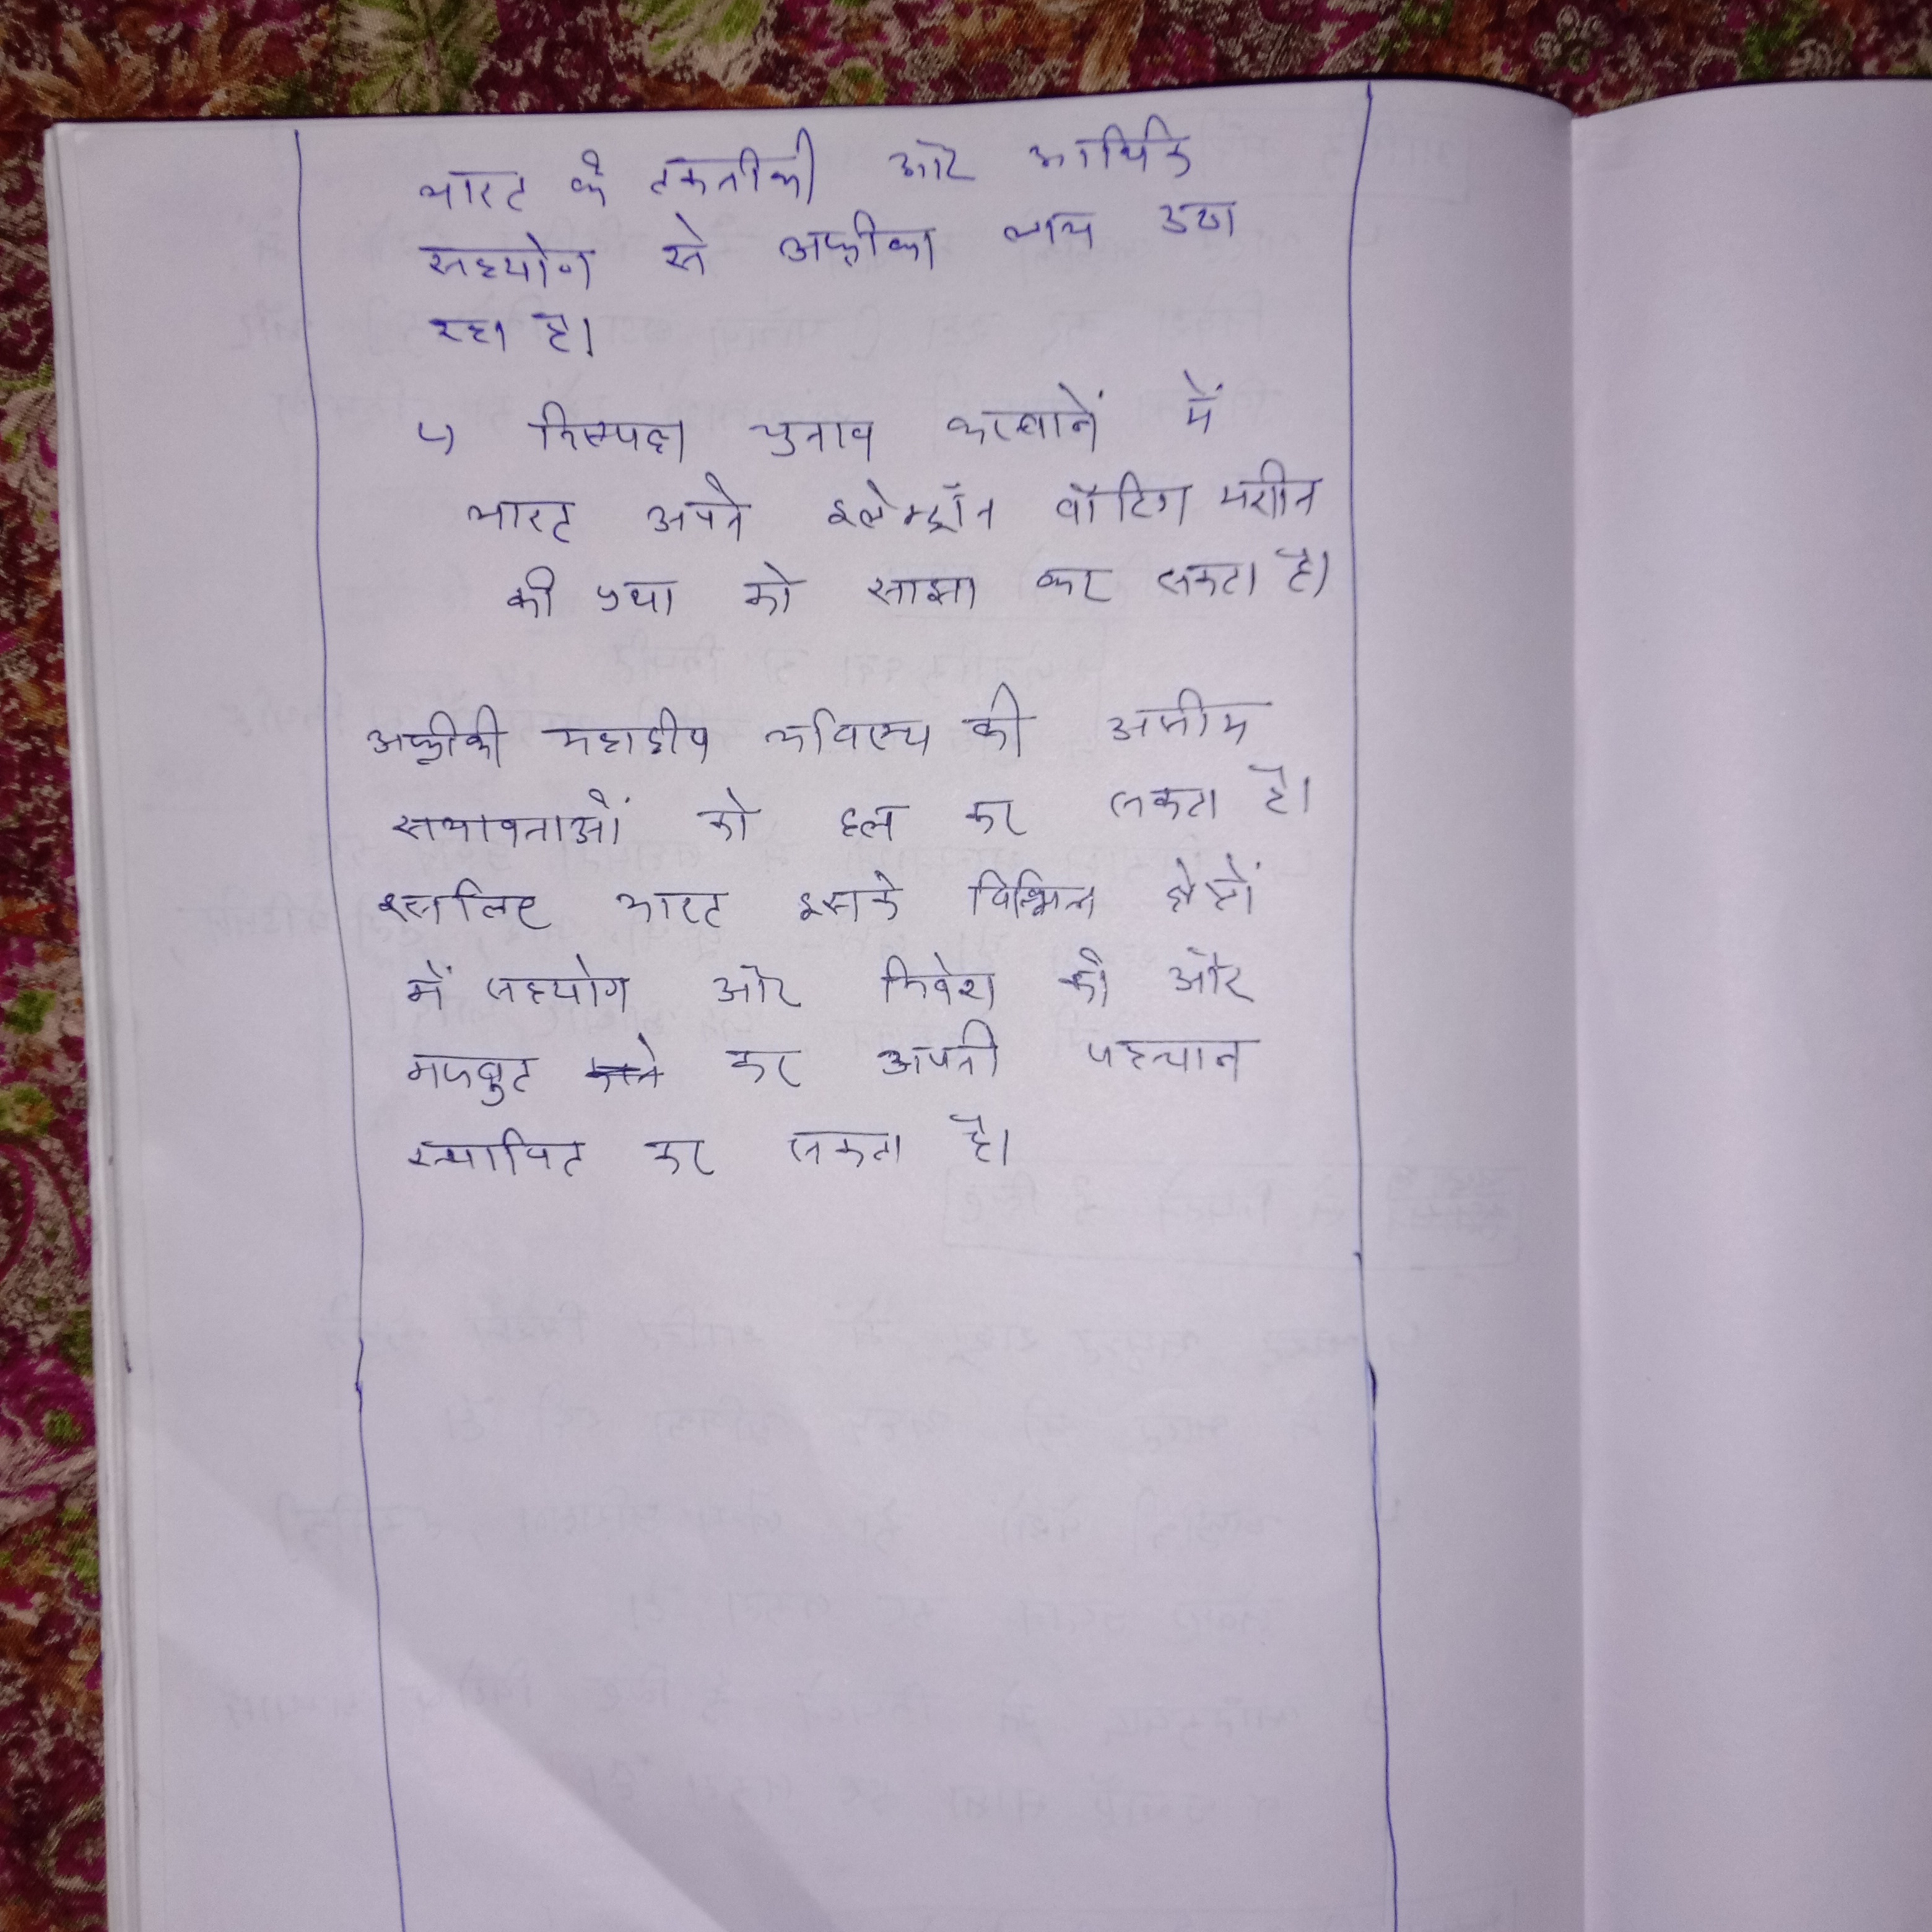 भारत के तकनीकी और आर्थिक
सहयोग से अफ्रीका लाभ उठा
रहा है।
↳ निस्पक्ष चुनाव करवानें में
भारत अपने इलेक्ट्रॉन वोटिंग मशीन
की प्रथा को साझा कर सकता है।
अफ्रीकी महाद्वीप भविष्य की असीम
सभावनाओं को हल कर सकता है।
इसलिए भारत इसके विभिन्न क्षेत्रों
में सहयोग और निवेश को और
मजबुत कर अपनी पहचान
स्थापित कर सकता है।